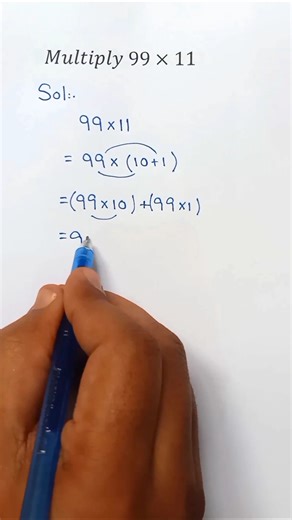 Multiply 99 × 11
Sol:.
99 × 11
= 99 × (10+1)
= (99 × 10) + (99 × 1)
= 9